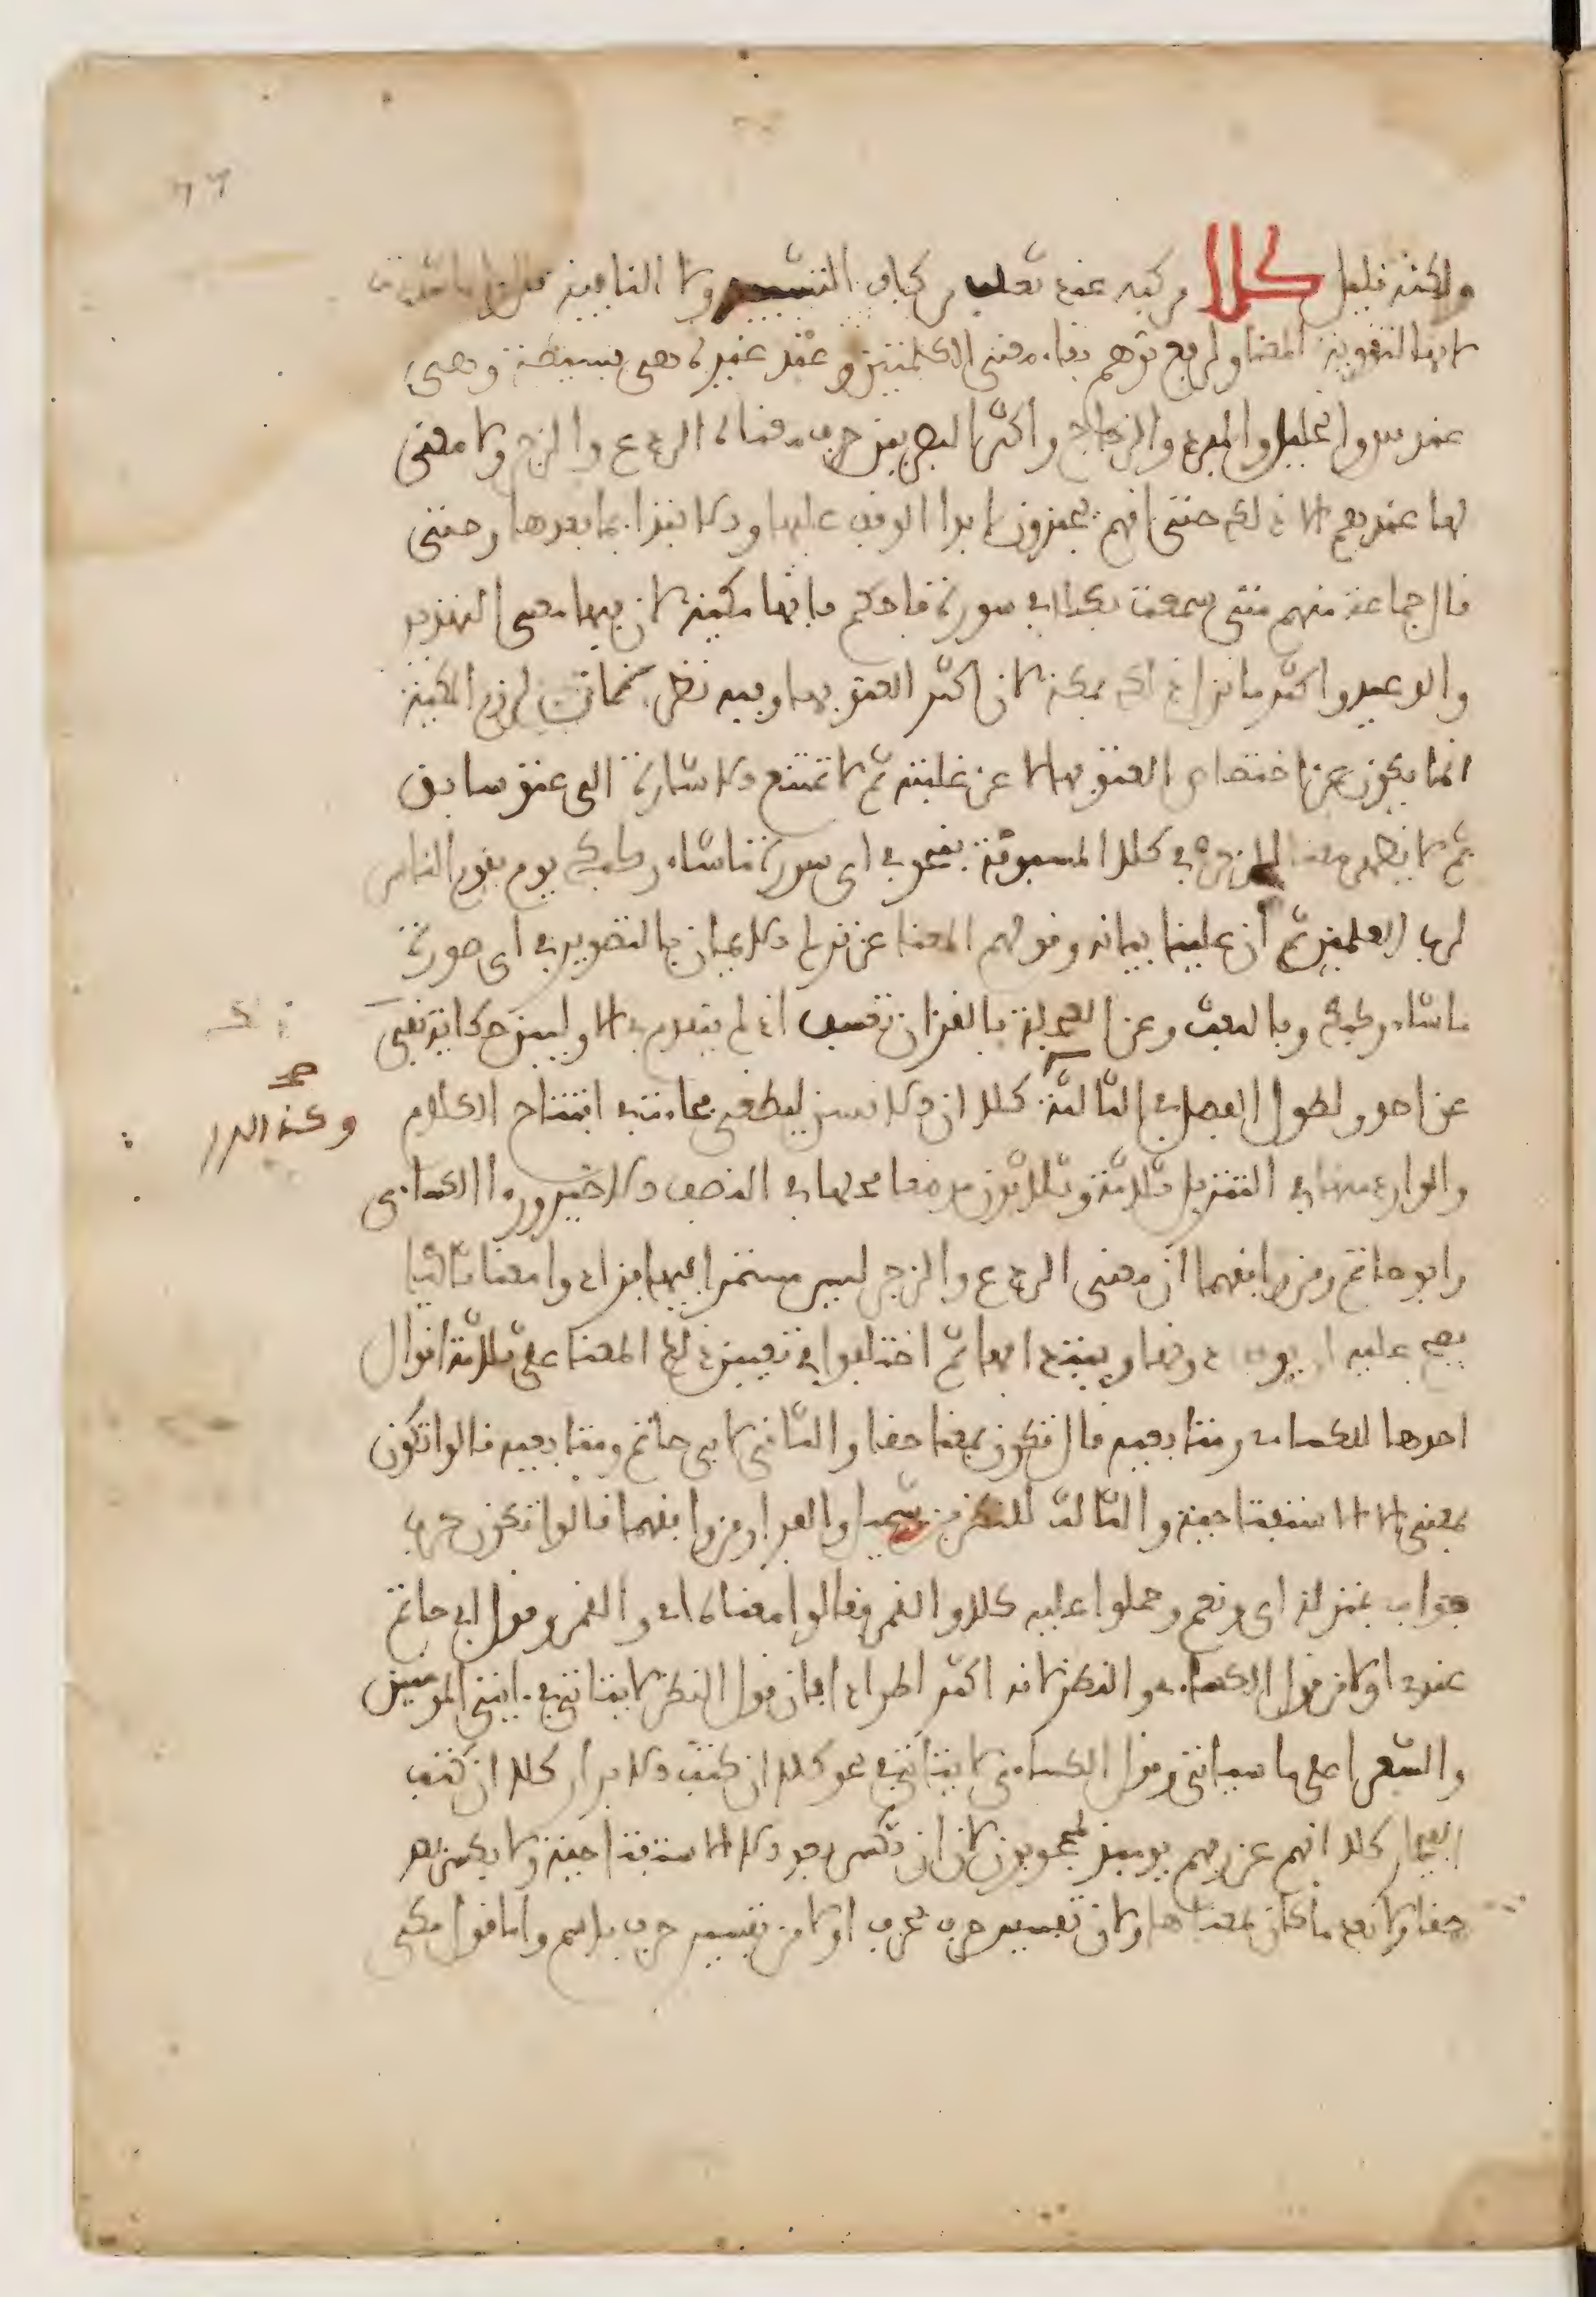 ولكنه قليل كلا مركبه عند ثعلب من كاف التشبيه ولا النافية قال وانما شددت
لامها لتقوية المعنا ولدفع توهم بقاء معنى الكلمتين وعند غيره هى بسيطة وهى
عند س والخليل والمبرد والزجاج واكثر البصريين حرف معناه الردع والزجر لا معنى
لها عندهم الا ذلك حتى انهم يجيزون ابدا الوقف عليها والابتدا بما بعدها وحتى
قال جماعة منهم متى سمعت كلا في سورة فاحكم بانها مكية لان فيها معنى التهديد
والوعيد واكثر ما نزل ذلك بمكة لان اكثر العتو بها وفيه نظر لان لزوم المكية
انما يكون عن اختصاص العتو بها لا عن غلبته ثم لا تمتنع الاشارة الى عتو سابق
ثم لا يظهر معنا الزجر في كلا المسبوقة بنحو في اى سورة ما شاء ركبك يوم يقوم الناس
لرب العلمين ثم ان علينا بيانه وقولهم المعنا عن ترك الايمان بالتصوير في اى صورة
ما شاء ركبك وبالبعث وعن العجلة بالقران تعسف اذ لم يتقدم في الاوليين حكاية نفى
عن احد ولطول الفصل في الثالثة كلا ان الانسن ليطغى فجاءت في افتتاح الكلام
والوارد منها في التنزيل ثلاثة وثلاثون موضعا كلها في النصف الاخير وراا الكساءى
وابو حاتم ومن وافقهما ان معنى الردع والزجر ليس مستمرا فيها فزادوا معنا ثانيا
يصح عليه ان يوقف دونها ويبتدء بها ثم اختلفوا في تعيين ذلك المعنا على ثلاثة اقوال
احدها للكساءى ومتابعيه قال تكون بمعنا حقا والثانى لابى حاتم ومتابعيه قالوا تكون
بمعنى الا الاستفتاحية والثالث للنضر بن شميل والفرا ومن وافقهما قالوا تكون حرف
جواب بمنزلة اى ونعم وحملوا عليه كلا والقمر فقالوا معناه اى والقمر وقول ابى حاتم
عندى اولى من قول الكساءى والنضر لانه اكثر اطرادا فان قول النضر لا يتاتى في ءايتى المومنين
والشعرا على ما سياتى وقول الكساءى لا يتاتى في نحو كلا ان كتب الابرار كلا ان كتب
الفجار كلا انهم عن ربهم يوميذ لمحجوبون لان ان تكسر بعد الا الاستفتاحية ولا تكسر بعد
حقا ولا بعد ما كان بمعناها ولان تفسير حرف بحرف اولى من تفسير حرف باسم واما قول مكى